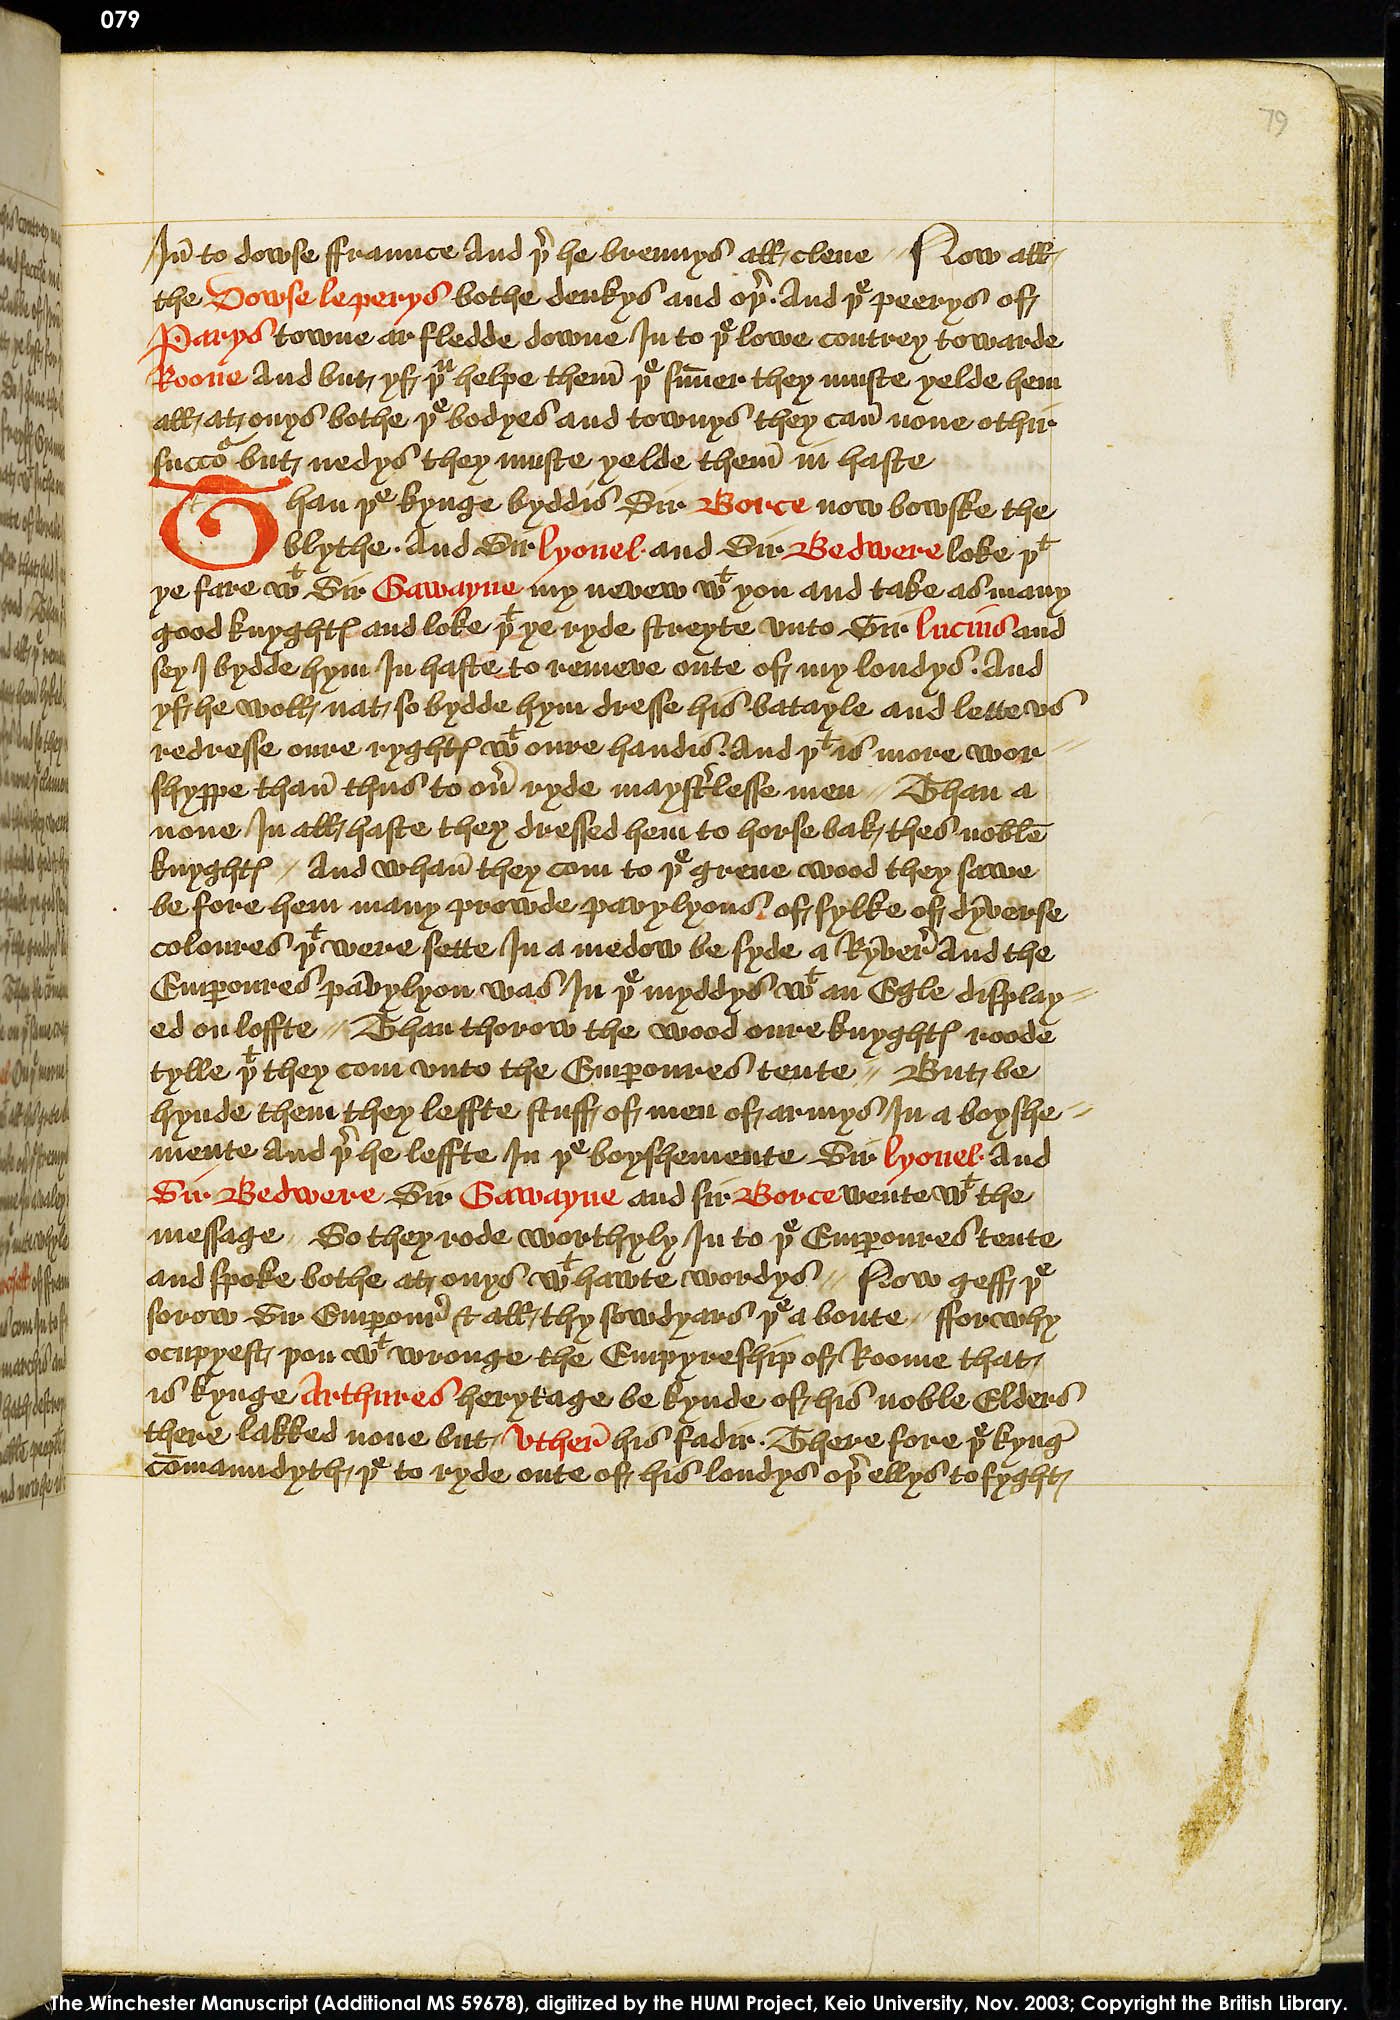 079
79
In̄ to dowse ffraunce And þ̉ he brennys all clene // Now all
the Dowseleperys bothe deukys and oþ̉. And þᵉ peerys of
Parys towne ar fledde downe In to þᵉ lowe contrey towarde
Roone And but yf þᵘ helpe them̄ þᵉ sun̄er they muste yelde hem
all at onys bothe þᵉ bodyes and townys they can̄ none othir
succoᵃ but nedys they muste yelde them̄ in haste
Than þᵉ kynge byddis Sir Borce now bowske the
blythe. And Sir lyonel and Sir Bedwere loke þᵗ
ye fare wᵗ Sir Gawayne my nevew wᵗ you and take as many
good knyghtꝭ and loke þᵗ ye ryde streyte vnto Sir lucius and
sey I bydde hym In haste to remeve oute of my londys. And
yf he woll nat so bydde hym dresse his batayle and lette vs
redresse oure ryghtꝭ wᵗ oure handis. And þᵗ is more wor //
shyppe than̄ thus to oũ ryde mayst̉lesse men // Than a
none In all haste they dressed hem to horse bak thes noble
knyghtꝭ // And whan̄ they com to þᵉ grene wood they sawe
be fore hem many prowde pavylyons of sylke of dyverse
coloures þᵗ were sette In a medow be syde a Ryver̉ And the
Emꝑoures pavylyon was In þᵉ myddys wᵗ an Egle display //
ed on loffte // Than thorow the wood oure knyghtꝭ roode
tylle þᵗ they com vnto the Emꝑoures tente // But be
hynde them they leffte stuff of men of armys In a boyshe //
mente And þ̉ he leffte In þᵉ boyshemente Sir lyonel And
Sir Bedwere Sir Gawayne and sir Borce wente wᵗ the
message // So they rode worthyly In to þᵉ Emꝑoures tente
and spoke bothe at onys wᵗ hawte wordys // Now geff þᵉ
sorow Sir Emꝑour̉ & all thy sowdyars þᵉ a boute // ffor why
ocupyest þou wᵗ wronge the Empyreship of Roome that
is kynge Arthures herytage be kynde of his noble Elders
there lakked none but Vther̉ his fadir. There fore þᵉ kyng̉
com̄aundyth þᵉ to ryde oute of his londys oþ̉ ellys to fyght
The Winchester Manuscript (Additional MS 59678), digitized by the HUMI Project, Keio University, Nov. 2003; Copyright the British Library.